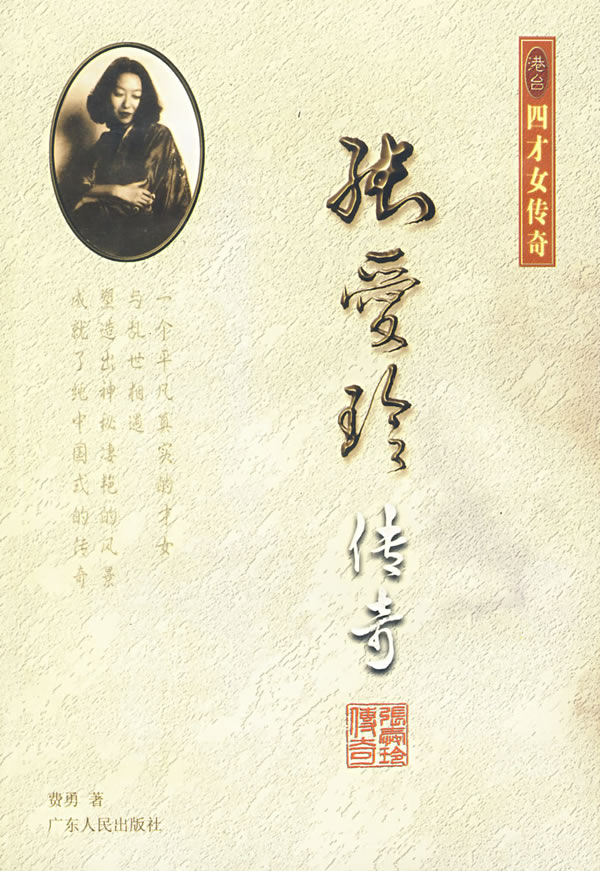 港台
四才女传奇
張愛玲
传奇
張愛玲
傳奇
一个平凡真实的才女
与乱世相遇
塑造出神秘凄艳的风景
成就了纯中国式的传奇
费勇 著
广东人民出版社